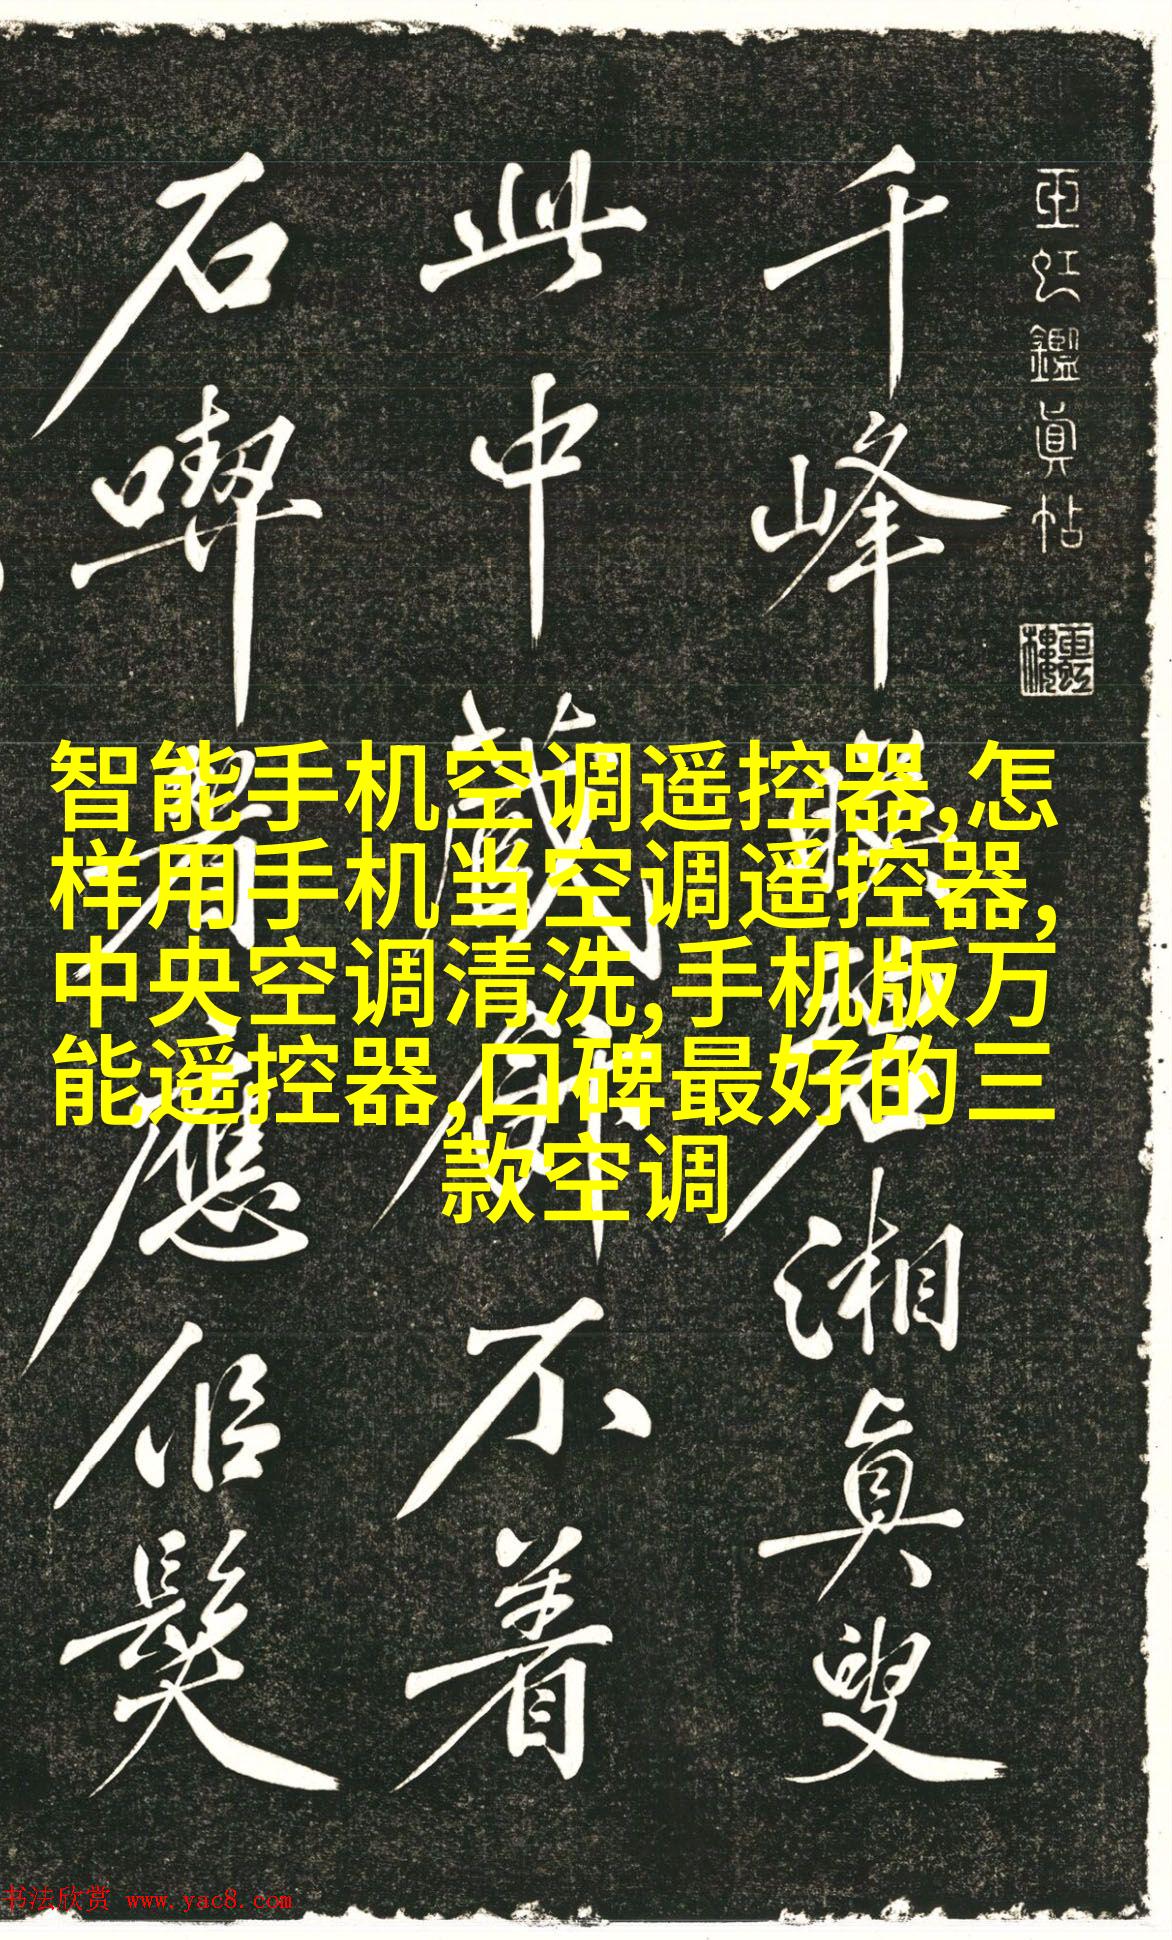 亞虹鑑眞帖
亞虹樓
千峰映碧湘真叟
此中藏餅不着
石喫眉應佀髮
智能手机空调遥控器,怎
样用手机当空调遥控器,
中央空调清洗,手机版万
能遥控器,口碑最好的三
款空调
书法欣赏 www.yac8.com